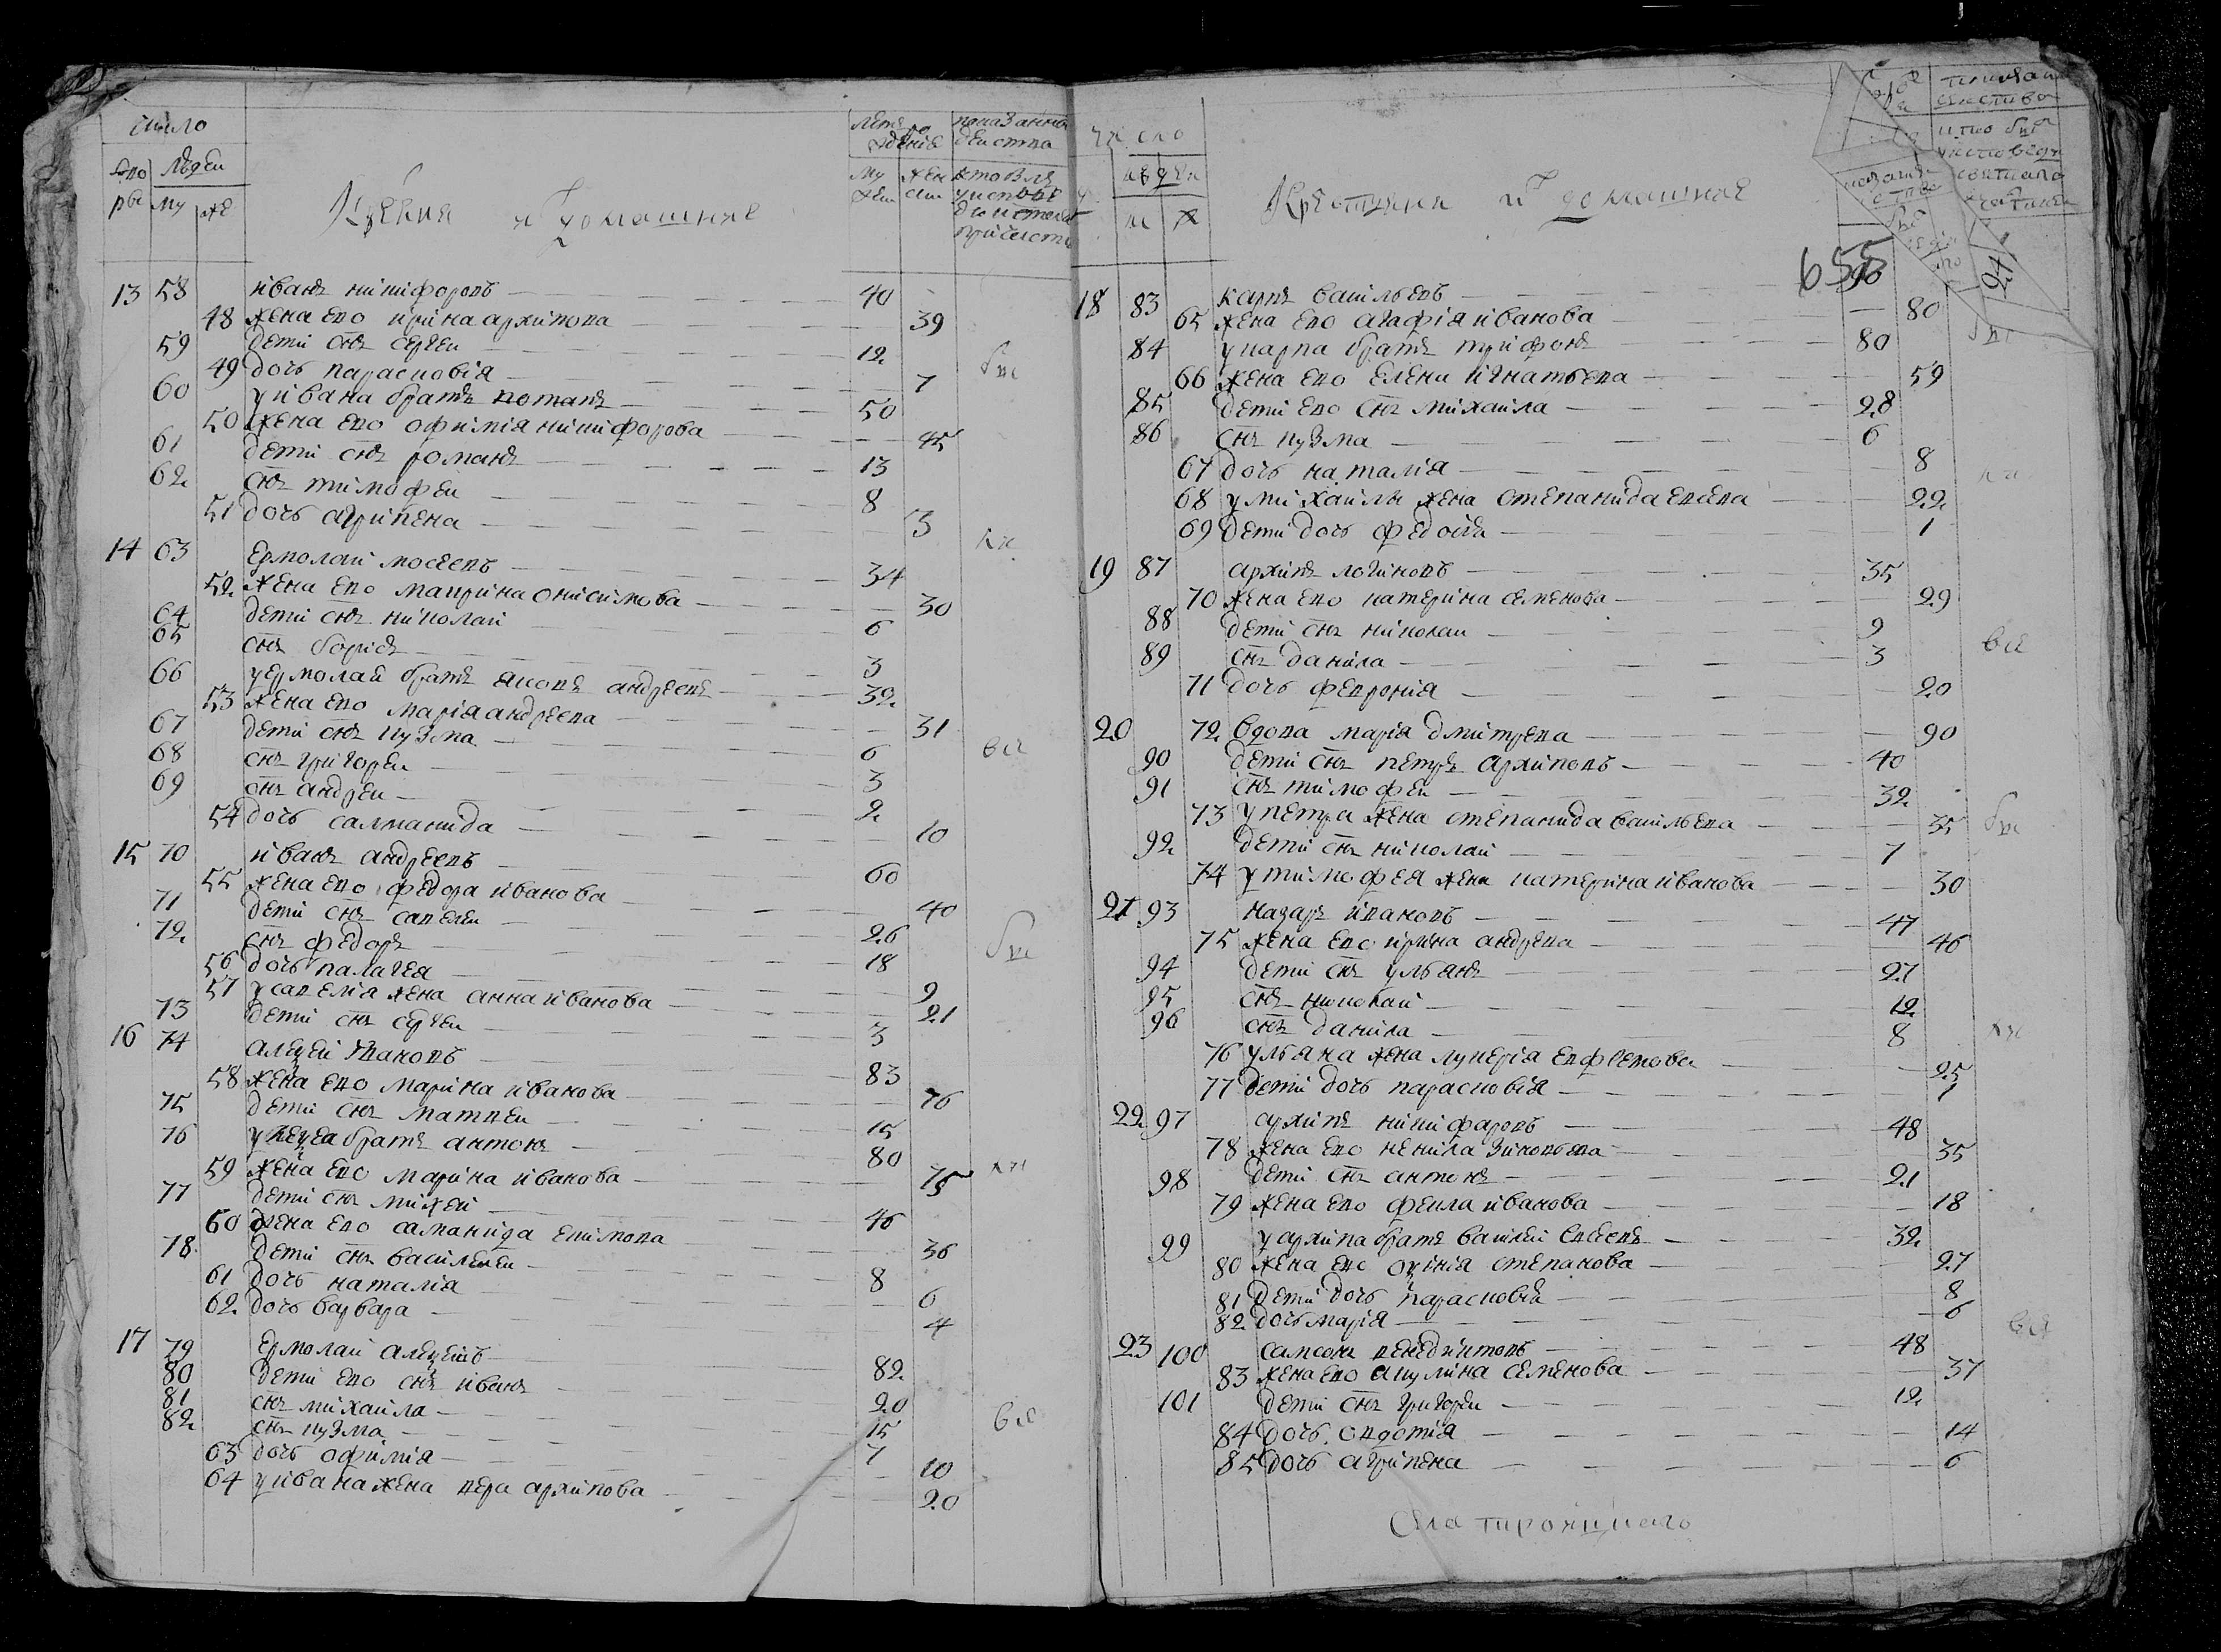 число
дво ры людеи
му же
Крестьяня и домашние
лета рождения
му жен
показанны действа
кто был у исповеди и святаго причастия
13 58 иванъ никифоровъ 40
48 жена ево ирина архипова 39
59 дети снъ сергеи 12
49 дочь парасковiя 7
60 у ивана братъ потапъ 50
50 жена ево офимiя никифорова 45
61 дети снъ романъ 13
62 снъ тимофеи 8
51 дочь агрипена 3
14 63 ермолаи мосеевъ 34
52 жена ево маврина онисимова 30
64 дети снъ николаи 6
65 снъ борисъ 3
66 у ермолаи братъ яковъ андреевъ 32
53 жена ево марiя андреева 31
67 дети снъ кузма 6
68 снъ григореи 3
69 снъ андреи 2
54 дочь салманида 10
15 70 иванъ андреевъ 60
55 жена ево федора иванова 40
71 дети снъ савелеи 26
72 снъ федоръ 18
56 дочь палагея 9
57 у савелiя жена анна иванова 21
73 дети снъ сергеи 3
16 74 алексеи ивановъ 83
58 жена ево марина иванова 76
75 дети снъ матвеи 15
76 у алексея братъ антонъ 80
59 жена ево марина иванова 75
77 дети снъ михеи 46
60 жена ево саманида екимова 36
78 дети снъ василеи 8
61 дочь наталiя 6
62 дочь варвара 4
17 79 ермолаи алексеевъ 82
80 дети ево снъ иванъ 20
81 снъ михаила 15
82 снъ кузма 7
63 дочь офимiя 10
64 у ивана жена вера архипова 20
число
людеи
м ж
Крестьяня и домашние
655
18 83 карпъ васильевъ 90
65 жена ево агафiя иванова 80
84 у карпа братъ трифонъ 80
66 жена ево елена игнатьева 59
85 дети ево снъ михаила 28
86 снъ кузма 6
67 дочь наталiя 8
68 у михаилы жена степанида евсева 22
69 дети дочь федосiя 1
19 87 архипъ логиновъ 35
70 жена ево катерина семенова 29
88 дети снъ николаи 9
89 снъ данила 3
71 дочь феврониiя 20
20 72 вдова марiя дмитрева 90
90 дети снъ петръ архиповъ 40
91 снъ тимофеи 32
73 у петра жена степанида васильева 35
92 дети снъ николаи 7
74 у тимофея жена катерина иванова 30
21 93 назаръ ивановъ 47
75 жена ево ирина андрева 46
94 дети снъ ульянъ 27
95 снъ николаи 12
96 снъ данила 8
76 ульяна жена лукерiя евфремова 25
77 дети дочь парасковiя 1
22 97 архипъ никифаровъ 48
78 жена ево ненила зиновьева 35
98 дети снъ антонъ 21
79 жена ево фекла иванова 18
99 у архипа братъ василеи евсеевъ 32
80 жена ево оксинiя степанова 27
81 дети дочь парасковiя 8
82 дочь марiя 6
23 100 самсонъ венедиктовъ 48
83 жена ево акулина семенова 37
101 дети снъ григореи 12
84 дочь овдотiя 14
85 дочь агрипена 6
Села троицкаго